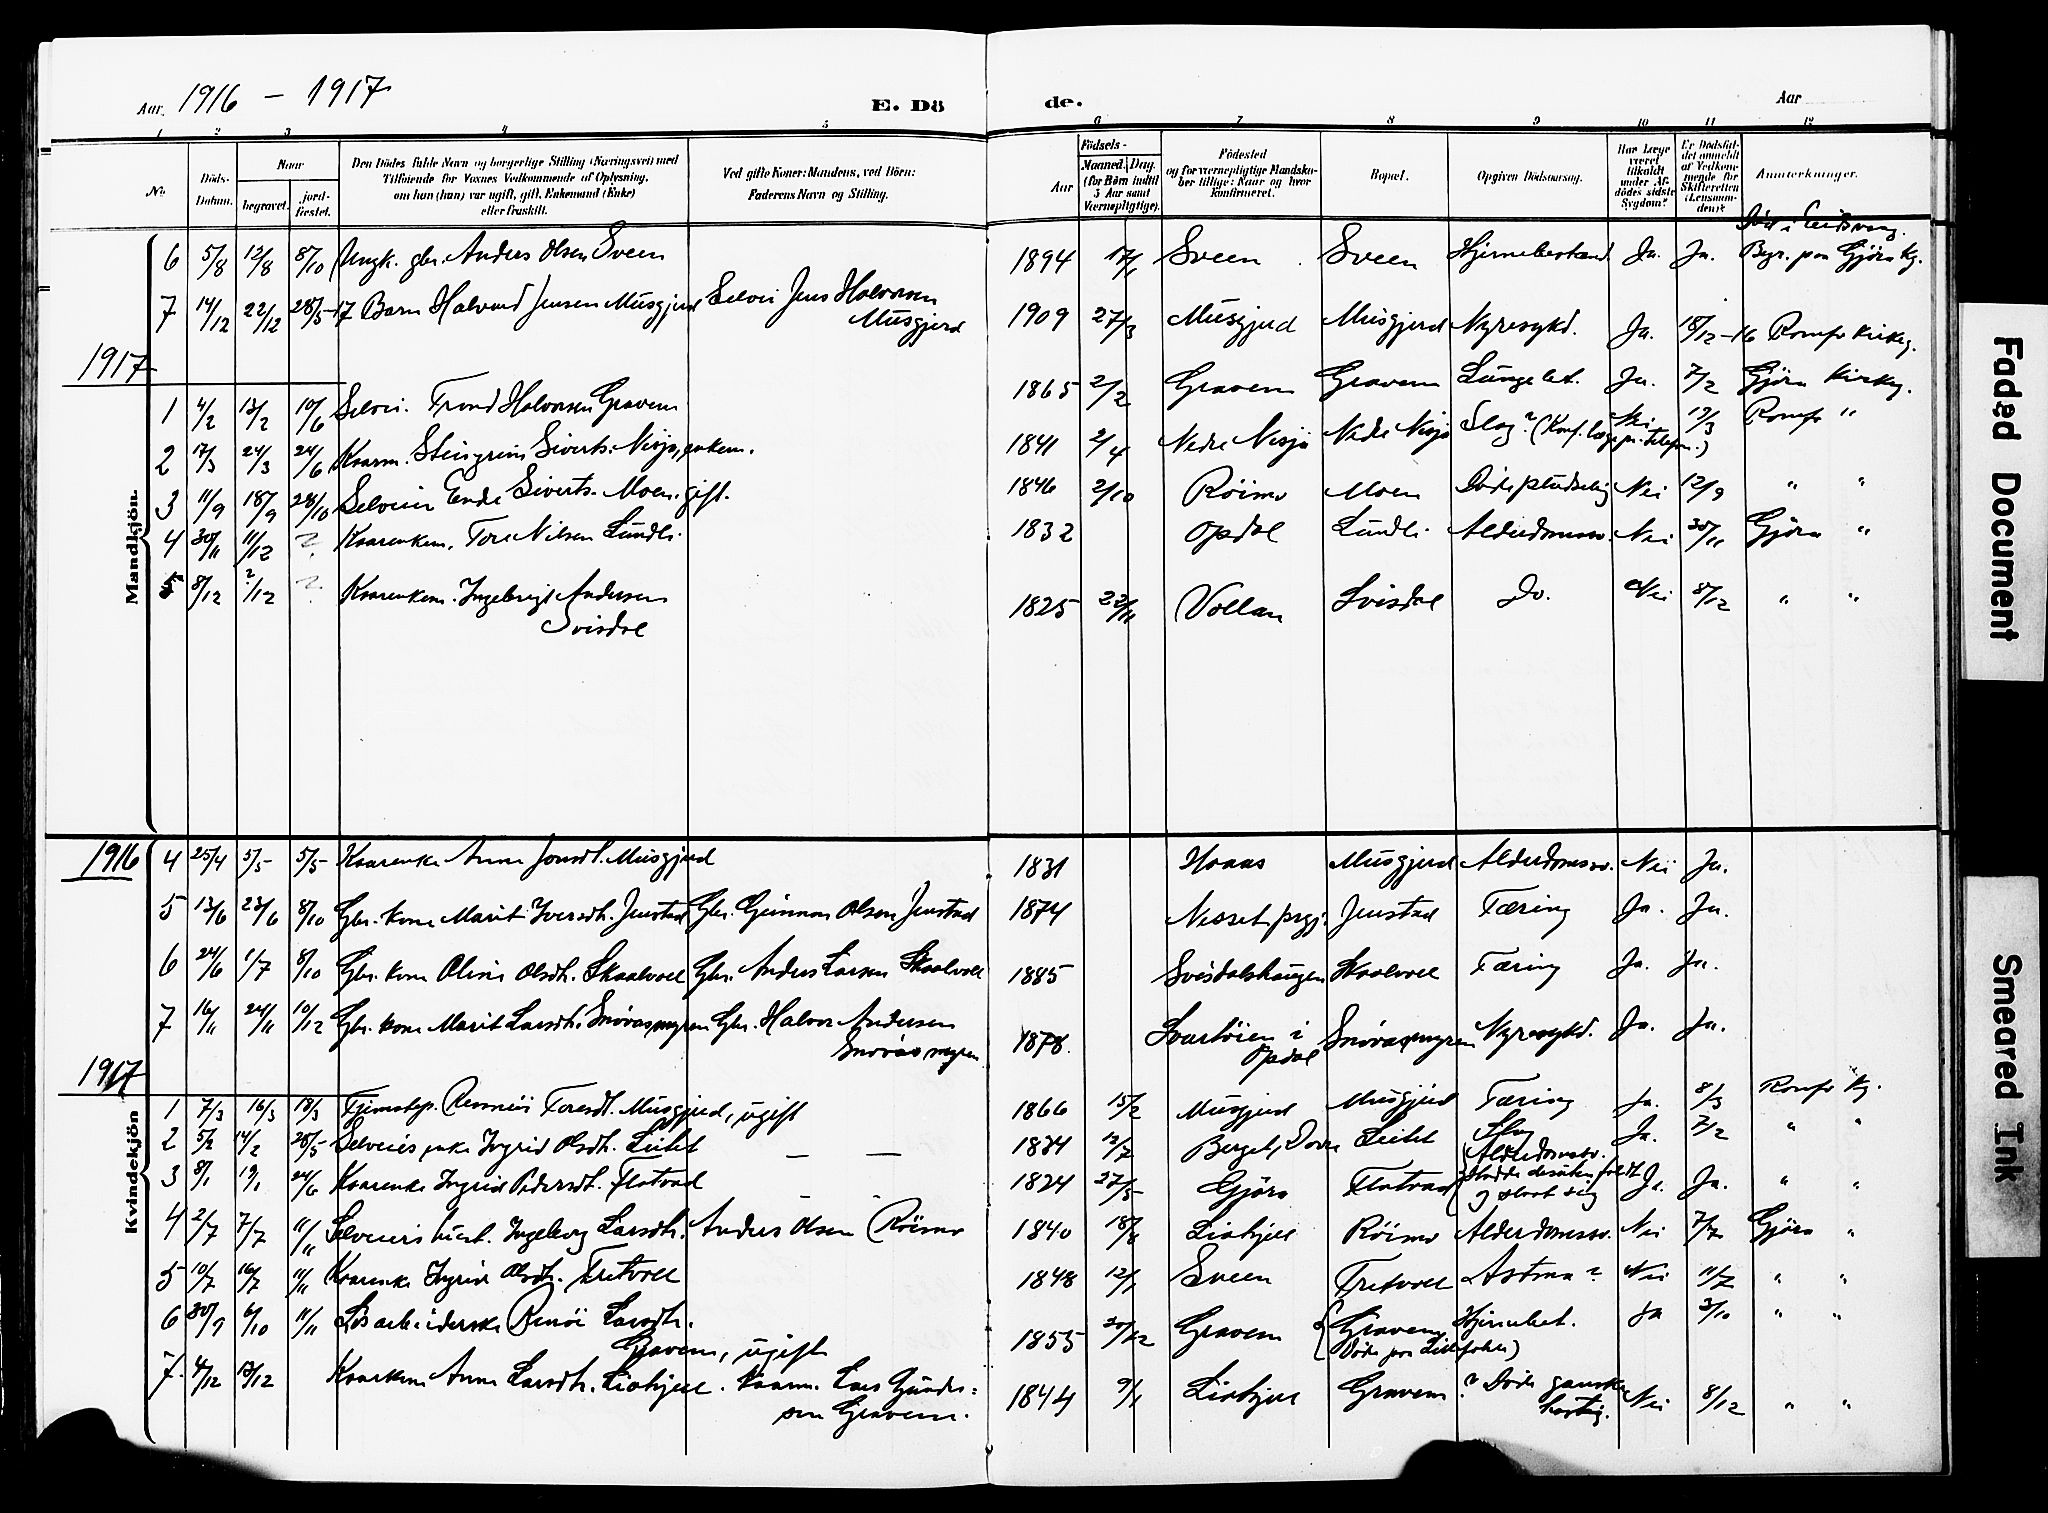 Aar 1916 - 1917 E. Dö de. Aar
1 2 3 4 5 6 7 8 9 10 11 12
No. Döds-Datum. Naar begravet. jord-fæstet. Den Dödes fulde Navn og borgerlige Stilling (Næringsvei) med Tilföiende for Voxnes Vedkommende af Oplysning, om hun (han) var ugift, gift, Enkemand (Enke) eller fraskilt. Ved gifte Koner: Mandens, ved Börn: Faderens Navn og Stilling. Födsels- Aar Maaned. Dag. (for Börn indtil 3 Aar samt Værnepligtige). Födested og for værnepligtige Mandskaber tillige: Naar og hvor konfirmeret. Bopæl. Opgiven Dödsaarsag. Har Læge været tilkaldt under Afdödes sidste Sygdom? Er Dödsfaldet anmeldt af Vedkommende for Skifteretten (Lensmanden)? Anmærkninger.
Mandkjön.
6 5/8 12/8 8/10 Ungk. gbr. Anders Olsen Sveen 1894 17/1 Sveen Sveen Hjernebetænd Ja. Ja. Död i Eidsvaag. Begr. paa Gjöra kg.
7 14/12 22/12 28/5-17 Barn Halvard Jensen Musgjerd Selvei Jens Halvorsen Musgjerd 1909 27/3 Musgjerd Musgjerd Nyresykd. Ja. 18/12-16 Romfo kirkeg.
1917
1 4/2 13/2 10/6 Selvei. Trond Halvorsen Gravem 1865 2/2 Gravem Gravem Lungebet. Ja. 7/2 Gjöra kirkeg.
2 17/3 24/3 24/6 Kaarm. Steingrim Siverts. Nisja, enkem. 1841 2/4 Nedre Nisja Nedre Nisja Slag? (Konf. læge pr. telefon.) Nei 19/3 Romfo "
3 11/9 18/9 28/10 Selveier Ende Siverts. Moen. gift. 1846 2/10 Röimo Moen Döde pludselig Nei 12/9 " "
4 30/11 11/12 ? Kaarenkem. Tore Nilsen Lundli. 1832 Opdal Lundli. Alderdomssv. Nei 30/11 Gjöra "
5 8/12 ?/12 ? Kaarenkem. Ingebrigt Andersen Svisdal 1825 22/11 Vollan Svisdal Do. Nei 8/12 " "
1916
Kvindekjön
4 25/4 5/5 5/5 Kaarenke Anne Jonsdt. Musgjerd 1831 Hoaas Musgjerd Alderdomssv. Nei Ja.
5 13/6 23/6 8/10 Gbr. kone Marit Iversdt. Jenstad Gbr. Gunnar Olsen Jenstad 1874 Nesset prgj. Jenstad Tæring Ja. Ja.
6 24/6 1/7 8/10 Gbr. kone Oline Olsdt. Skaalvoll Gbr. Anders Larsen Skaalvoll 1885 Svisdalshaugen Skaalvoll Tæring Ja. Ja.
7 16/11 24/11 10/12 Gbr. kone Marit Larsdt. Snövasmyren Gbr. Halvor Andersen Snövasmyren 1878. Svartöien i Opdal Snövasmyren Nyresykd. Ja. Ja.
1917
1 7/3 16/3 18/3 Tjenestep. Rannöi Toresdt. Musgjerd, ugift 1866 15/2 Musgjerd Musgjerd Tæring Ja. 8/3 Romfo kg.
2 5/2 14/2 28/5 Selveiers enke Ingrid Olsdt. Leitet — — 1834 12/7 Berget, Dovre Leitet Slag Ja. 7/2 " "
3 8/1 19/1 24/6 Kaarenke Ingrid Pedersdt. Flatvad 1824 27/5 Gjöra Flatvad Alderdomssv. Hadde desuten faldt og slaat sig Ja. Ja. " "
4 2/7 7/7 11/11 Selveiers hust. Ingeborg Larsdt. Anders Olsen Röimo 1840 18/6 Liahjell Röimo Alderdomssv. Nei 7/7 Gjöra "
5 10/7 16/7 11/11 Kaarenke Ingrid Olsdt. Tretvoll 1848 12/1 Sveen Tretvoll Astma? Nei 11/7 " "
6 30/9 6/10 11/11 Lösarbeiderske Renöi Larsdt. Gravem, ugift 1855 20/12 Gravem Gravem (Döde paa Lillefale) Hjernebet. Ja 3/10 " "
7. 4/12 13/12 Kaarkone Anne Larsdt. Liahjell. Kaarm. Lars Gunder= sen Gravem. 1844 9/1 Liahjell Gravem ? Döde ganske hastig. Nei 8/12 " "
Faded Document
Smeared Ink